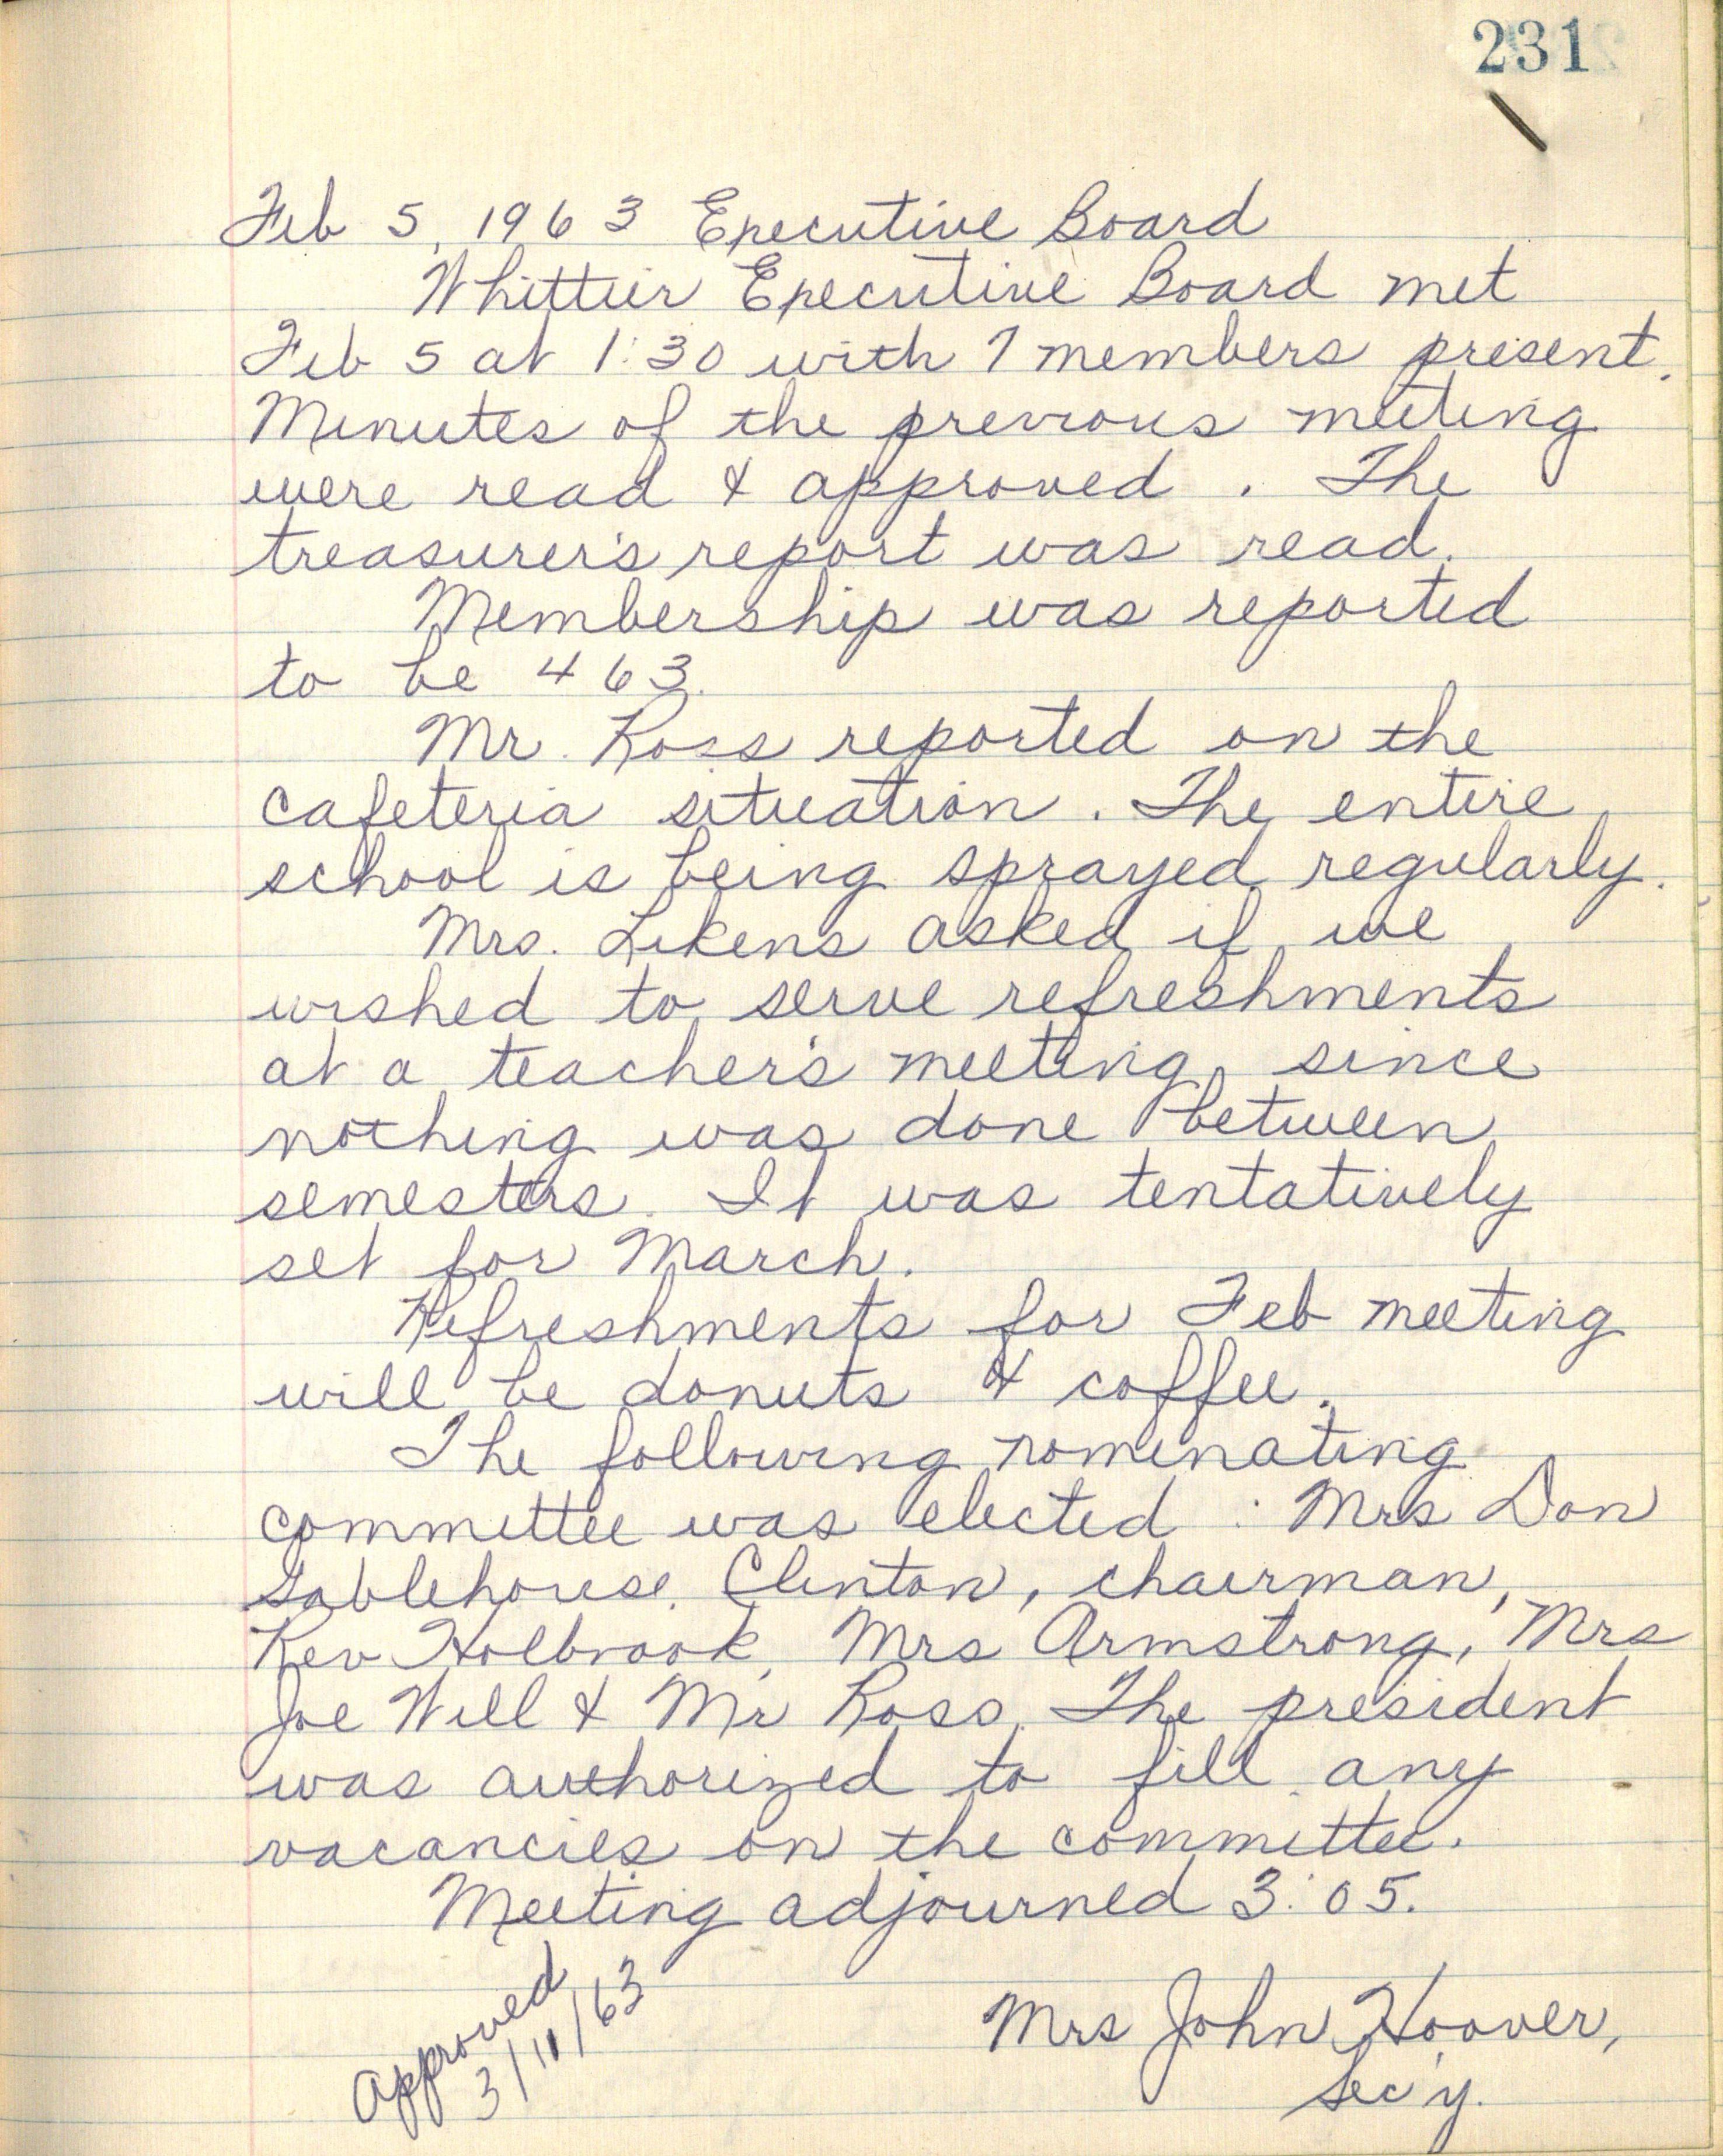 231
Feb 5, 1963 Executive Board
Whittier Executive Board met
Feb 5 at 1:30 with 7 members present.
Minutes of the previous meeting
were read & approved. The
treasurer's report was read.
Membership was reported
to be 463.
Mr. Ross reported on the
cafeteria situation. The entire
school is being sprayed regularly.
Mrs. Likens asked if we
wished to serve refreshments
at a teacher's meeting, since
nothing was done between
semesters. It was tentatively
set for March.
Refreshments for Feb meeting
will be donuts & coffee.
The following nominating
committee was elected: Mrs Don
Gablehouse, Clinton, chairman,
Rev Holbrook, Mrs Armstrong, Mrs
Joe Will & Mr Ross. The president
was authorized to fill any
vacancies on the committee.
Meeting adjourned 3:05.
Approved
3/11/63
Mrs John Hoover,
Sec'y.